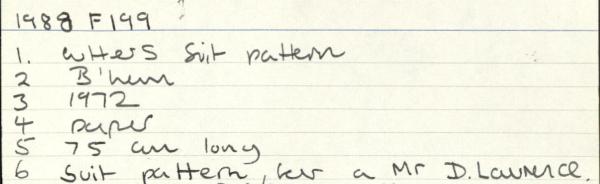 1988 F199
1. cutters suit pattern
2 B'ham
3 1972
4 paper
5 75 cm long
6 Suit pattern, for a Mr D. Lawrence.